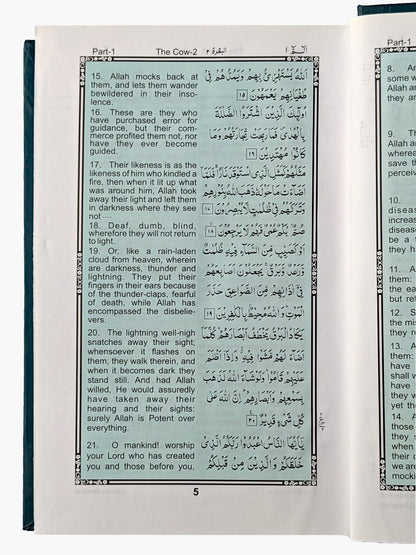 Part-1 The Cow-2 البقرة ٢ الٓمّٓ ١
15. Allah mocks back at
them, and lets them wander
bewildered in their inso-
lence.
16. These are they who
have purchased error for
guidance, but their com-
merce profited them not, nor
have they ever become
guided.
17. Their likeness is as the
likeness of him who kindled a
fire, then when it lit up what
was around him, Allah took
away their light and left them
in darkness where they see
not
18. Deaf, dumb, blind,
wherefore they will not return
to light.
19. Or, like a rain-laden
cloud from heaven, wherein
are darkness, thunder and
lightning. They put their
fingers in their ears because
of the thunder-claps, fearful
of death, while Allah has
encompassed the disbelie-
vers.
20. The lightning well-nigh
snatches away their sight;
whensoever it flashes on
them, they walk therein, and
when it becomes dark they
stand still. And had Allah
willed, He would assuredly
have taken away their
hearing and their sights;
surely Allah is Potent over
everything.
21. O mankind! worship
your Lord who has created
you and those before you,
اَللّٰهُ يَسْتَهْزِئُ بِهِمْ وَيَمُدُّهُمْ فِىْ
طُغْيَانِهِمْ يَعْمَهُوْنَ ١٥
اُولٰٓئِكَ الَّذِيْنَ اشْتَرَوُا الضَّلٰلَةَ
بِالْهُدٰى فَمَا رَبِحَتْ تِّجَارَتُهُمْ وَمَا
كَانُوْا مُهْتَدِيْنَ ١٦
مَثَلُهُمْ كَمَثَلِ الَّذِى اسْتَوْقَدَ نَارًا فَلَمَّآ
اَضَآءَتْ مَا حَوْلَهٗ ذَهَبَ اللّٰهُ بِنُوْرِهِمْ
وَتَرَكَهُمْ فِىْ ظُلُمٰتٍ لَّا يُبْصِرُوْنَ ١٧
صُمٌّۢ بُكْمٌ عُمْىٌ فَهُمْ لَا يَرْجِعُوْنَ ١٨
اَوْ كَصَيِّبٍ مِّنَ السَّمَآءِ فِيْهِ ظُلُمٰتٌ
وَّرَعْدٌ وَّبَرْقٌ يَجْعَلُوْنَ اَصَابِعَهُمْ
فِىْٓ اٰذَانِهِمْ مِّنَ الصَّوَاعِقِ حَذَرَ
الْمَوْتِ وَاللّٰهُ مُحِيْطٌۢ بِالْكٰفِرِيْنَ ١٩
يَكَادُ الْبَرْقُ يَخْطَفُ اَبْصَارَهُمْ كُلَّمَآ
اَضَآءَ لَهُمْ مَّشَوْا فِيْهِ وَاِذَآ اَظْلَمَ
عَلَيْهِمْ قَامُوْا وَلَوْ شَآءَ اللّٰهُ لَذَهَبَ
بِسَمْعِهِمْ وَاَبْصَارِهِمْ اِنَّ اللّٰهَ عَلٰى
كُلِّ شَىْءٍ قَدِيْرٌ ٢٠
يٰٓاَيُّهَا النَّاسُ اعْبُدُوْا رَبَّكُمُ الَّذِىْ
خَلَقَكُمْ وَالَّذِيْنَ مِنْ قَبْلِكُمْ
5
Part-1
8. An
some w
Allah a
they ar
9. Th
Allah ar
whereas
save the
perceiv
10.
disease
increas
disease
be a
they ha
11. A
them:
the ea
but re
12. S
the mis
they re
13.
have
shall
have
they a
yet the
14.
those
they s
when
their d
we are
mockin